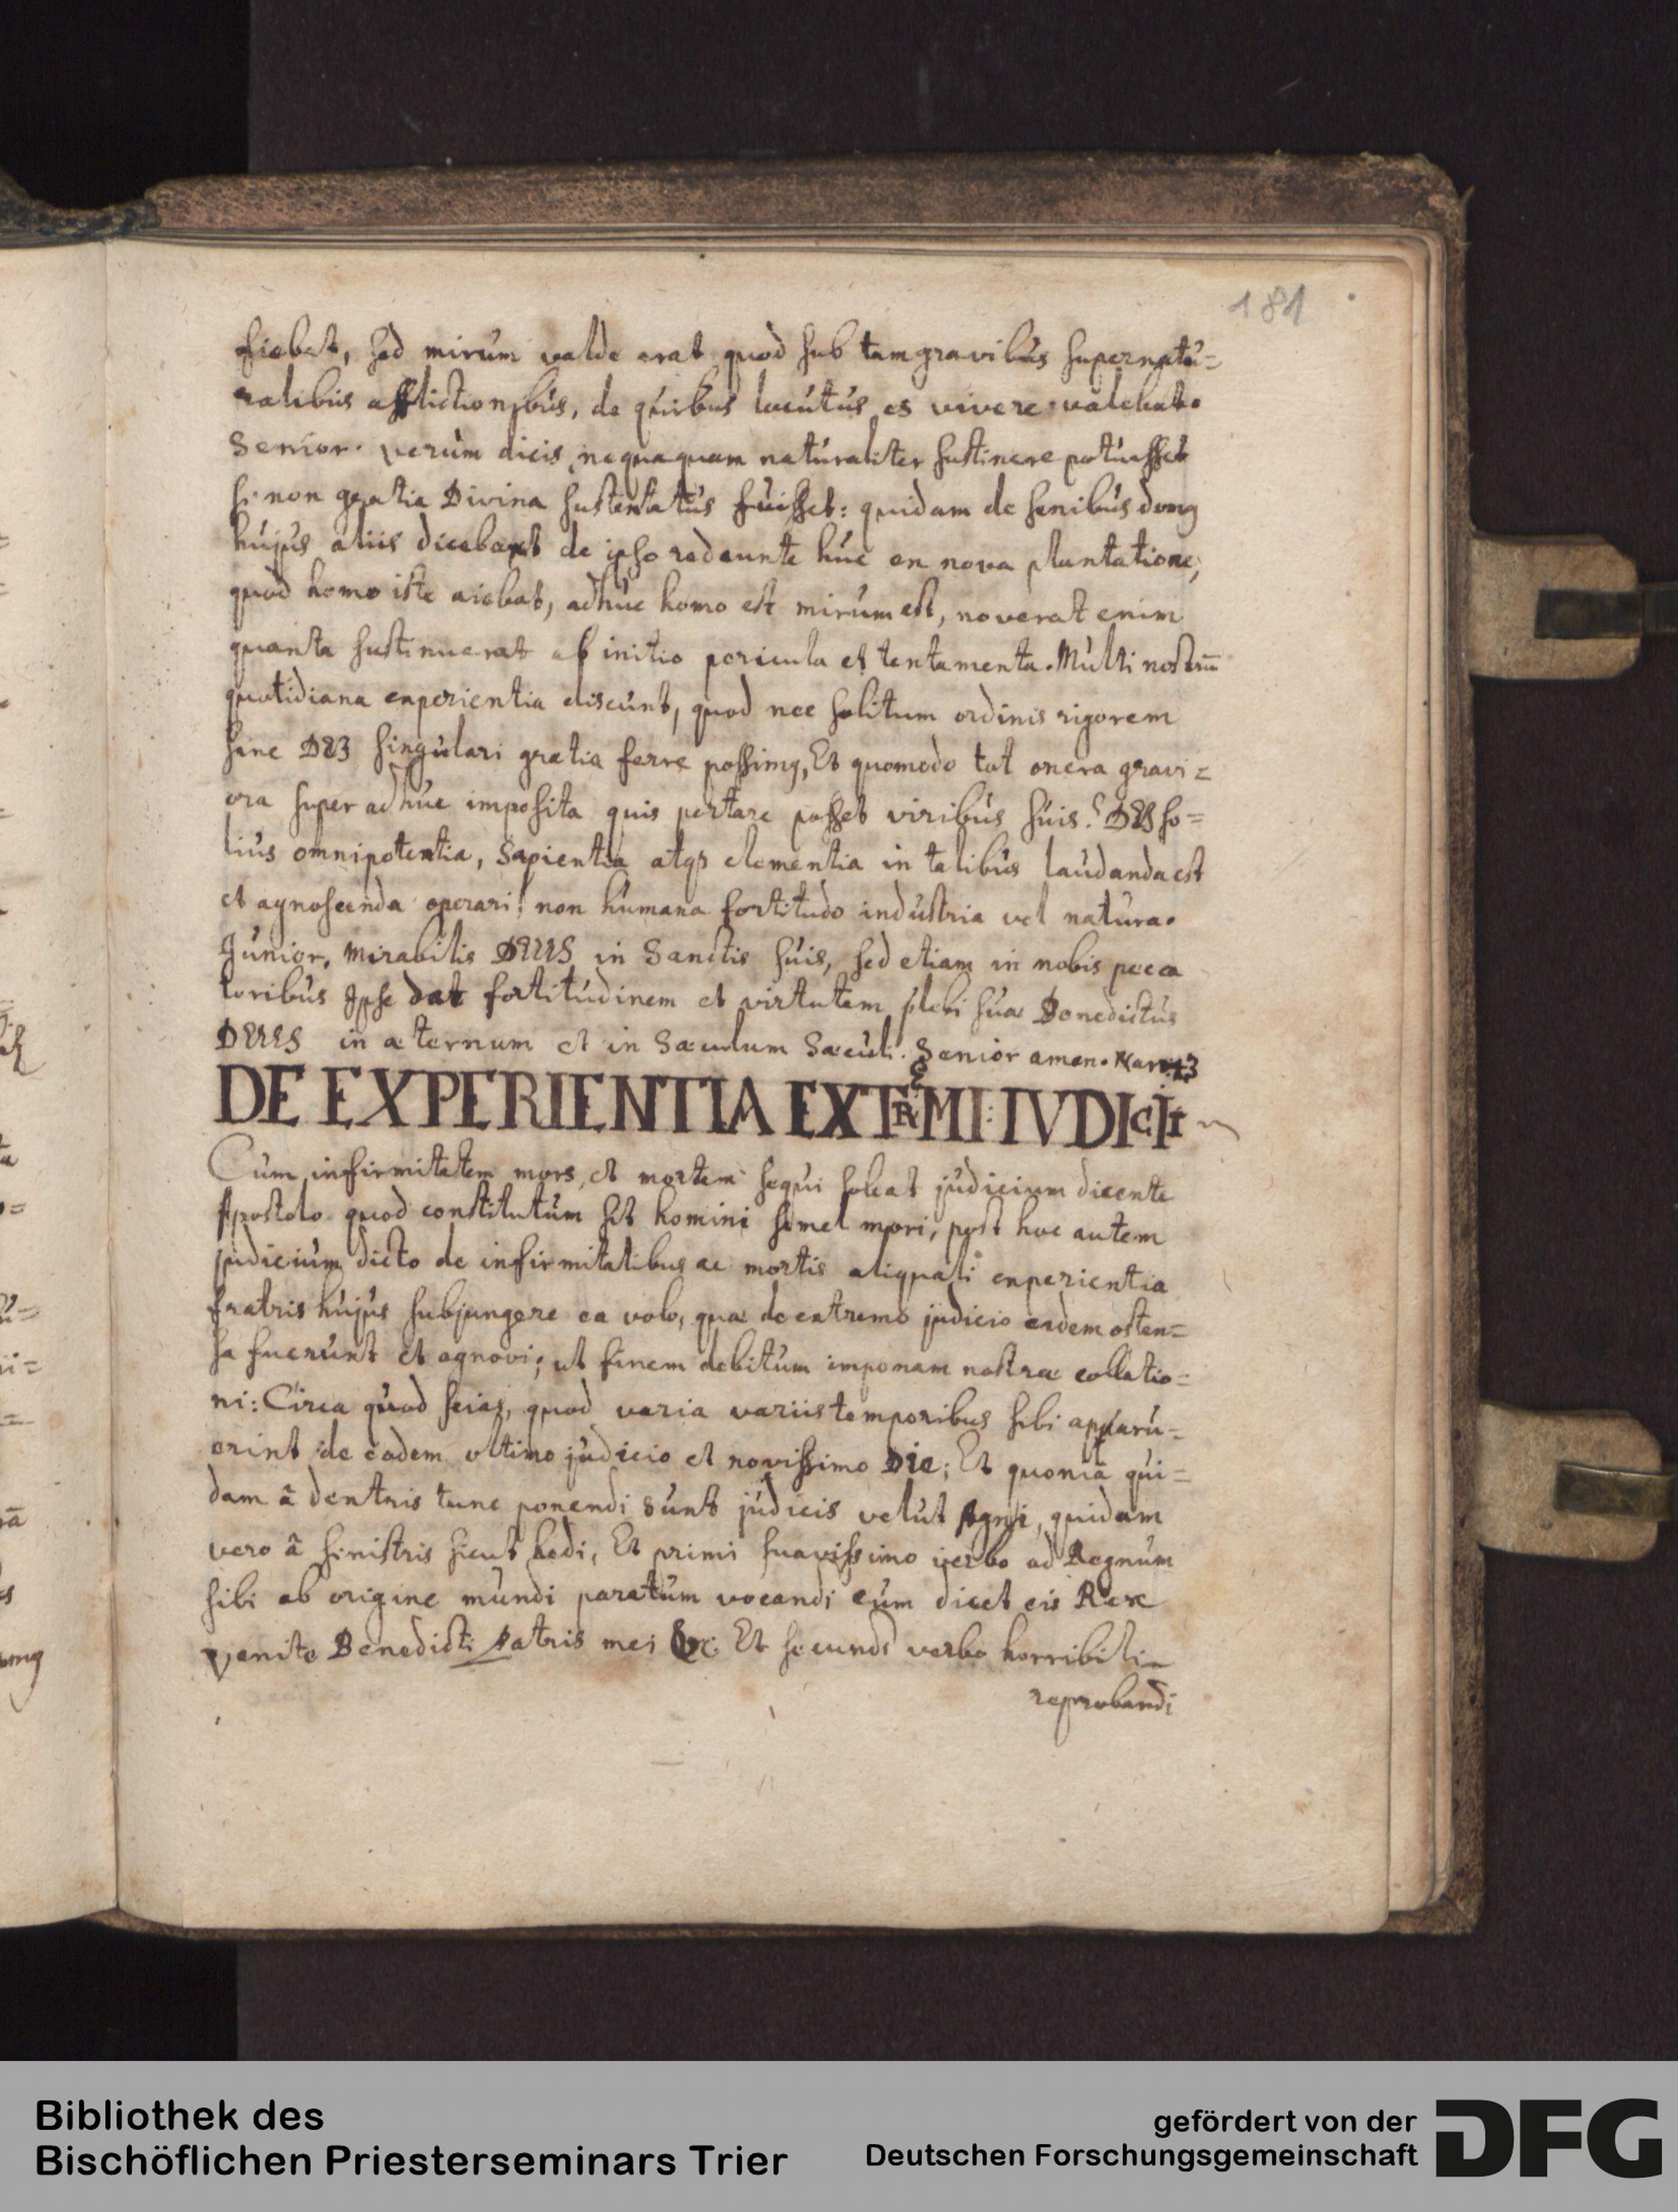 181
fiebat, sed mirum valde erat quod sub tam gravibus supernatu=
ralibus afflictionibus, de quibus locutus es vivere valebat.
Senior. verum dicis nequaquam naturaliter sustinere potuisset
si non gratia Divina sustentatus fuisset: quidam de senibus domg
hujus aliis dicebant de ipso redeunte huc ex nova plantatione,
quod homo iste aiebat, adhuc homo est mirum est, noverat enim
quanta sustinuerat ab initio pericula et tentamenta. Multi nostrum
quotidiana experientia discunt, quod nec solitum ordinis rigorem
sine DEI singulari gratia ferre possimg, Et quomodo tot onera gravi=
ora super adhuc imposita quis portare posset viribus suis? DEI so=
lius omnipotentia, Sapientia atqз clementia in talibus laudanda est
et agnoscenda operari; non humana fortitudo industria vel natura.
Junior. Mirabilis DEUS in Sanctis suis, sed etiam in nobis pecca
toribus Ipse dat fortitudinem et virtutem plebi suæ Benedictus
DEUS in æternum et in Sæculum Sæculi. Senior amen. Nar: 43
DE EXPERIENTIA EXTREMI: IVDICII
Cum infirmitatem mors, et mortem sequi soleat judicium dicente
Apostolo quod constitutum sit homini semel mori, post hoc autem
judicium dicto de infirmitatibus ac mortis aliquali experientia
fratris hujus subjungere ea volo, quæ de extremo judicio eidem osten=
sa fuerunt et agnovi; ut finem debitum imponam nostræ collatio=
ni: Circa quod scias, quod varia variis temporibus sibi apparu=
erint de eodem ultimo judicio et novissimo Die; Et quoniã qui=
dam ã dextris tunc ponendi sunt judicis velut Agni, quidam
vero ã sinistris sicut hedi, Et primi suavissimo verbo ad Regnum
sibi ab origine mundi paratum vocandi cum dicet eis Rex
Venite Benedicti Patris mei &c Et secundi verbo horribili
reprobandi
Bibliothek des
Bischöflichen Priesterseminars Trier
gefördert von der
Deutschen Forschungsgemeinschaft
DFG